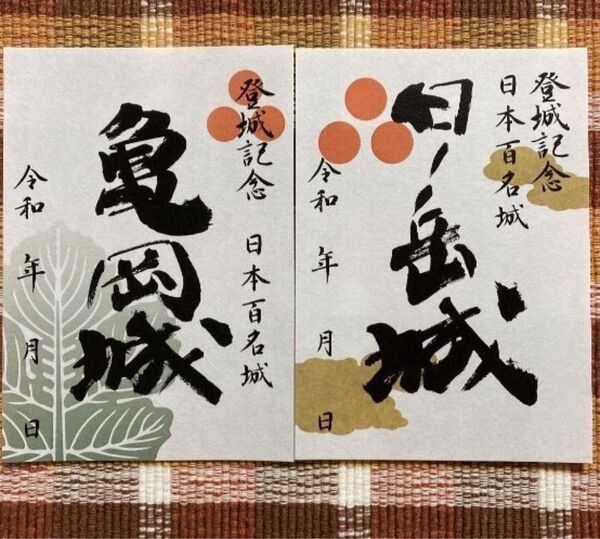 登城記念 日本百名城
亀岡城
令和 年 月 日
登城記念
日本百名城
日ノ岳城
令和 年 月 日